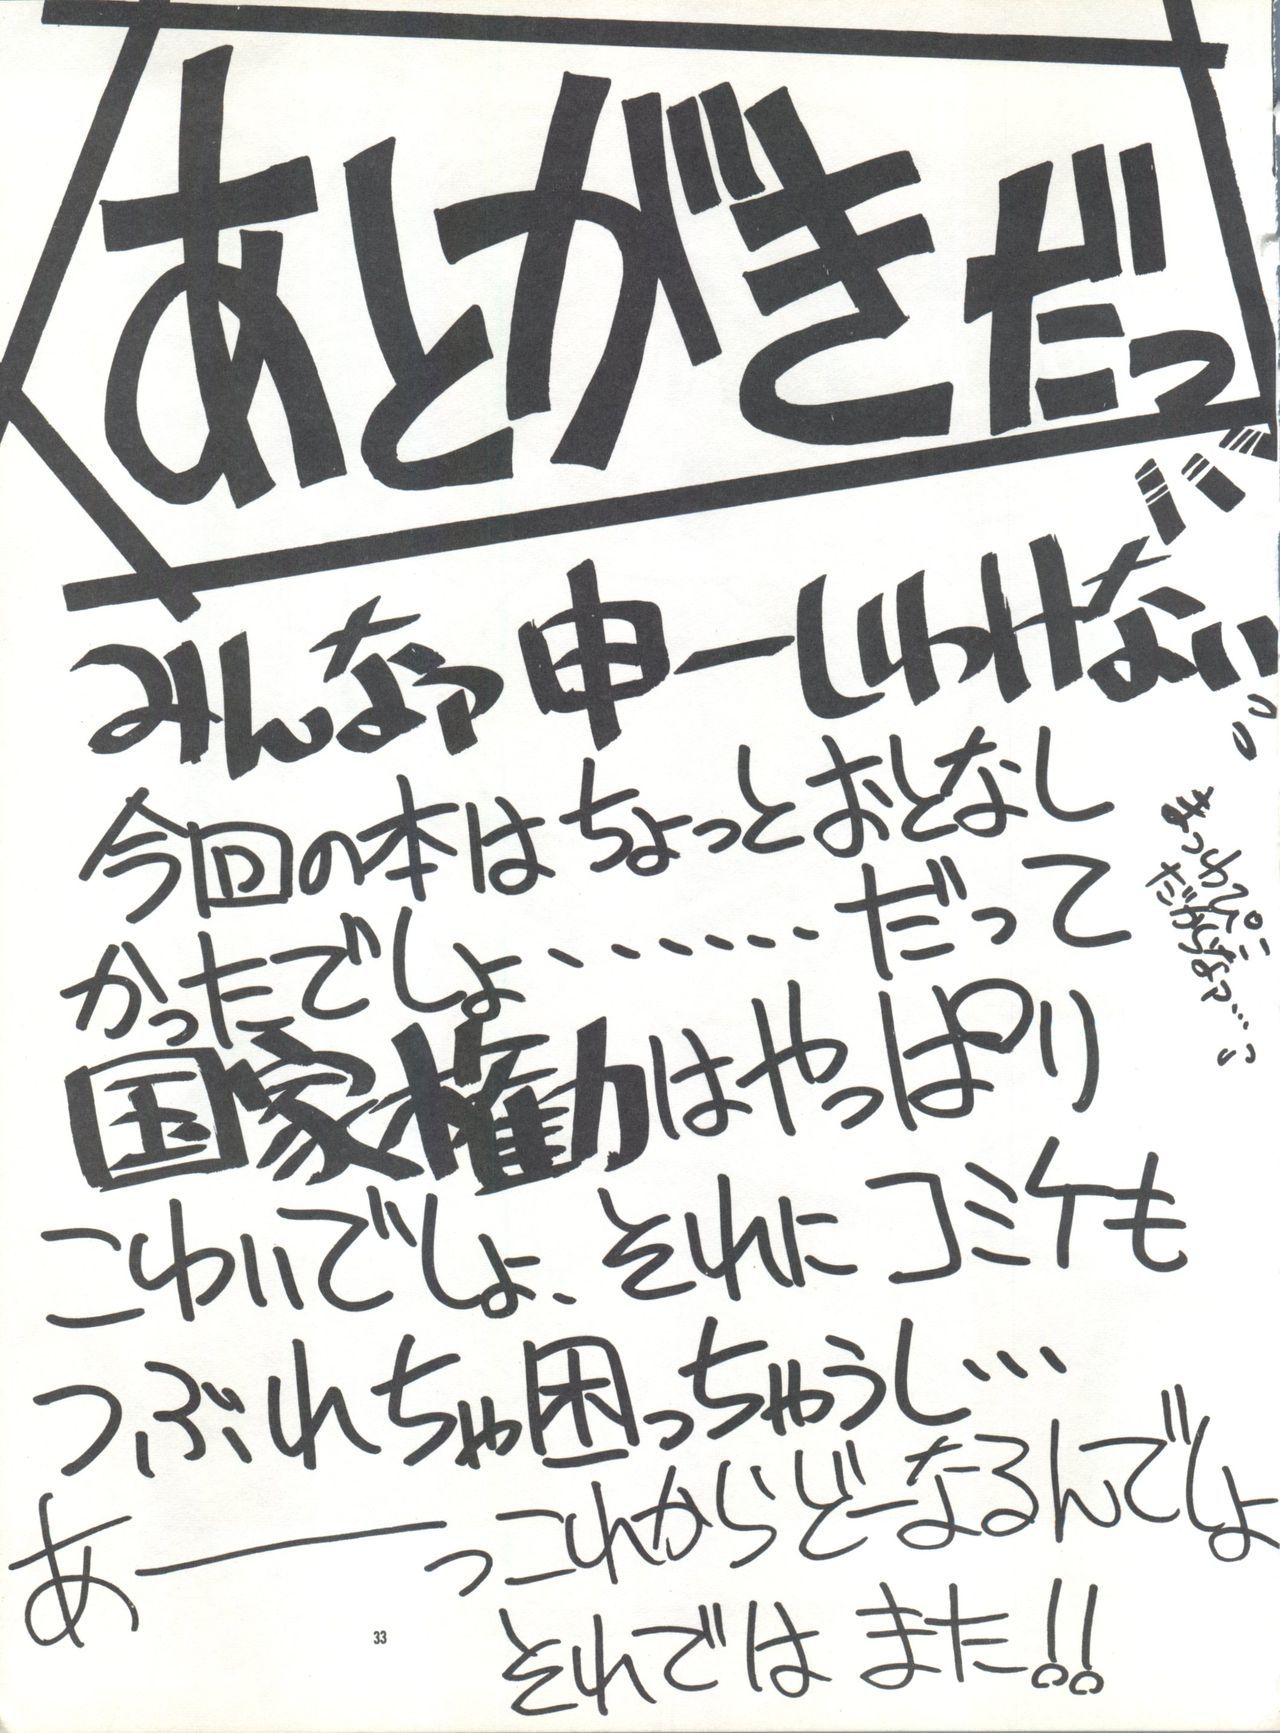 あとがきだっ
みんなァ申ーしわけない
今回の本はちょっとおとなし
かったでしょ・・・・・・・だって
国家権力はやっぱり
こわいでしょ、それにコミケも
つぶれちゃ困っちゃうし・・・
あーーーっこれからどーなるんでしょ
それでは また!!
33